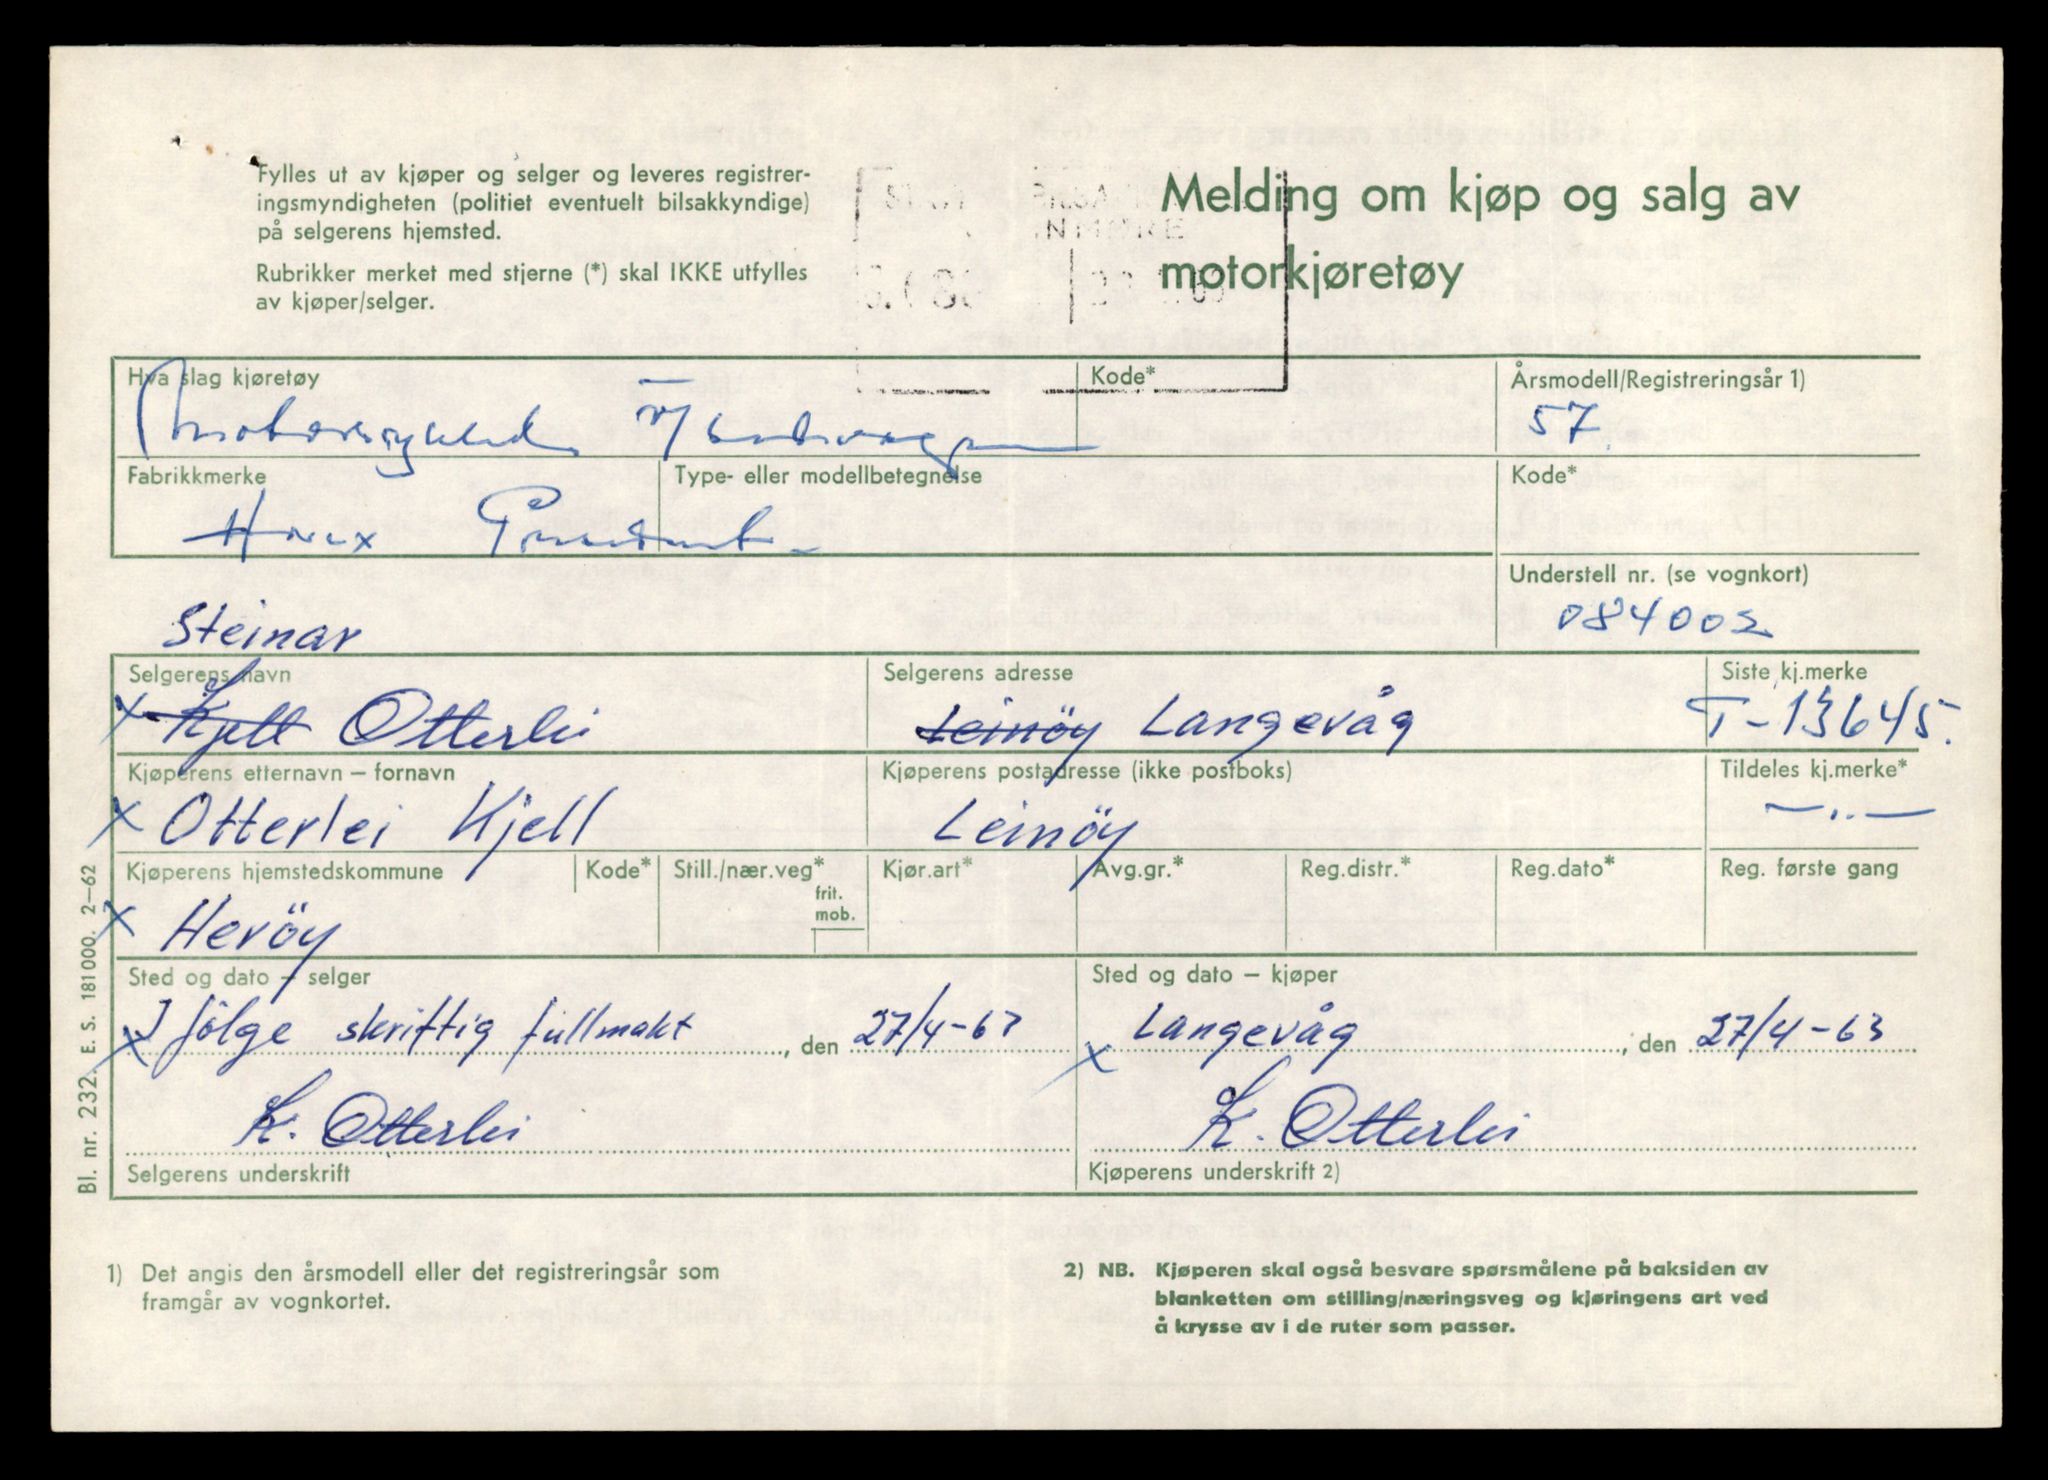 Fylles ut av kjøper og selger og leveres registrer-
ingsmyndigheten (politiet eventuelt bilsakkyndige)
på selgerens hjemsted.
Rubrikker merket med stjerne (*) skal IKKE utfylles
av kjøper/selger.
Melding om kjøp og salg av
motorkjøretøy
Hva slag kjøretøy
Kode*
Årsmodell/Registreringsår 1)
57
Fabrikkmerke
Type- eller modellbetegnelse
Kode*
Horex
Understell nr. (se vognkort)
084002
Steinar
Selgerens navn
Selgerens adresse
Siste kj.merke
x Kjell Otterlei
Leinöy Langevåg
T-13645.
Kjøperens etternavn – fornavn
Kjøperens postadresse (ikke postboks)
Tildeles kj.merke*
x Otterlei Kjell
Leinöy
—..—
Kjøperens hjemstedskommune
Kode*
Still./nær.veg*
frit.
mob.
Kjør.art*
Avg.gr.*
Reg.distr.*
Reg.dato*
Reg. første gang
x Heröy
Sted og dato – selger
Sted og dato – kjøper
x I fölge skriftig fullmakt, den 27/4-63
x Langevåg, den 27/4-63
K. Otterlei
K. Otterlei
Selgerens underskrift
Kjøperens underskrift 2)
Bl. nr. 232. E. S. 181000. 2–62
1) Det angis den årsmodell eller det registreringsår som
framgår av vognkortet.
2) NB. Kjøperen skal også besvare spørsmålene på baksiden av
blanketten om stilling/næringsveg og kjøringens art ved
å krysse av i de ruter som passer.